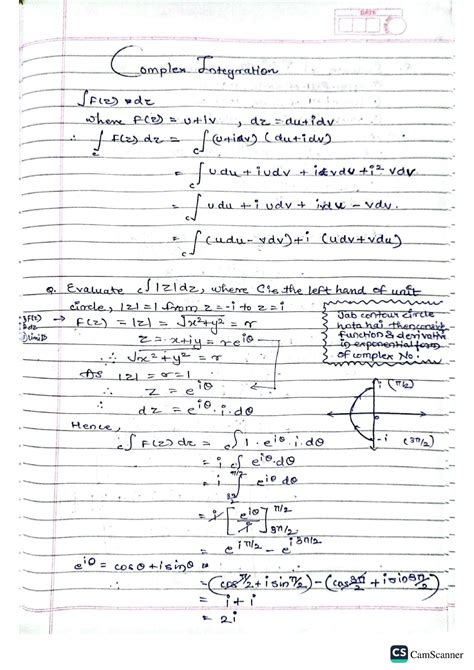 DATE
Complex Integration
∫F(z) dz
where F(z) = u+iv , dz = du+idv
∴ ∫_c F(z) dz = _c∫(u+idv) (du+idv)
= _c∫ udu + iudv + ivdu + i² vdv
= _c∫ udu + i udv + ivdu - vdv.
= _c∫ (udu - vdv) + i (udv + vdu)
Q. Evaluate _c∫ |z| dz, where C is the left hand of unit
circle, |z| = 1 from z = -i to z = i
→ F(z) = |z| = √x²+y² = r
z = x+iy = re^iθ
∴ √x²+y² = r
As |z| = r = 1
∴ z = e^iθ
∴ dz = e^iθ . i . dθ
Jab contour circle
hota hai then convert
function & derivative
in exponential form
of complex No.
i (π/2)
0
-i (3π/2)
Hence,
_c∫ F(z) dz = _c∫ 1 . e^iθ . i . dθ
= i _c∫ e^iθ . dθ
= i ∫_3π/2^π/2 e^iθ dθ
= i [e^iθ / i]_3π/2^π/2
= e^iπ/2 - e^i3π/2
e^iθ = cosθ + isinθ
∴ = (cos π/2 + i sin π/2) - (cos 3π/2 + i sin 3π/2)
= i + i
= 2i
CS CamScanner